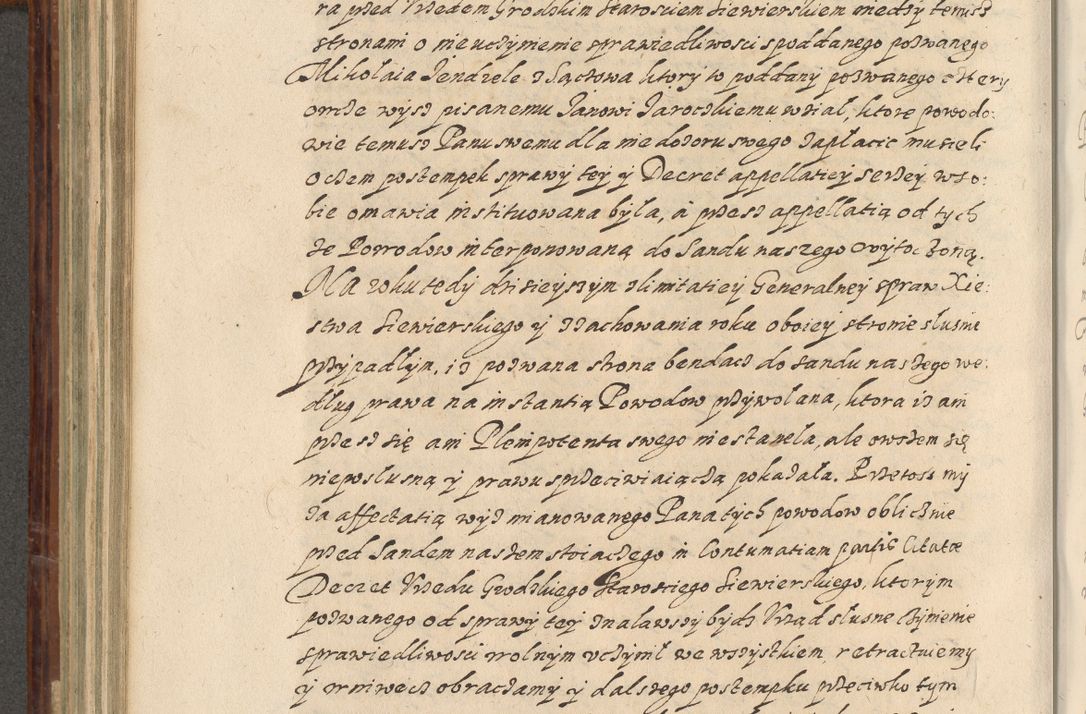 ra przed Vrzedem Grodzkim Staroskiem Siewierskiem miedzy temisz
stronami o nieuczynienie sprawiedliwosci s poddanego pozwanego
Mikolaia Jendzele z Sączowa ktory to poddany pozwanego cztery
omcze wysz pisanemu Janowi Jaroczkiemu wział, ktore powodo:
wie temusz Panu swemu dla niedozoru swego zapłacic musieli
oczem postempek sprawy tey y Decret appellatiey serzey w so:
bie omawia instituowana byla, a przesz appellatią od tych
ze Powodow interponowaną do Sandu naszego wytoczoną.
Na roku tedy dzisieyszym z limitatiey Generalney spraw Xie:
stwa Siewierskiego y zachowania roku oboiey stronie slusnie
przypadlym, isz pozwana strona bendacz do sandu naszego we:
dlug prawa na instantią Powodow przywolana, ktora isz ani
przesz się ani Plenipotenta swego niestanela, ale owszem się
nieposlusną y prawu sprzeciwiaiączą pokazala. Przetosz my
za affectatią wysz mianowanego Pana tych powodow oblicznie
przed Sandem naszem stoiaczego in Contumatiam partis Citatæ
Decret Vrzedu Grodzkiego Staroskiego Siewierskiego, ktorym
pozwanego od sprawy tey znalawszy bydz Vrząd slusne czynienie
sprawiedliwosci wolnym vczynil we wszystkiem retractuiemy
y wniwecz obraczamy y dalszego postempku przeciwko tym